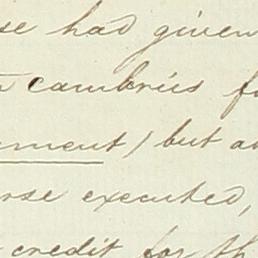 se had given
cambries fo
ment) but a
rse executed,
credit for th